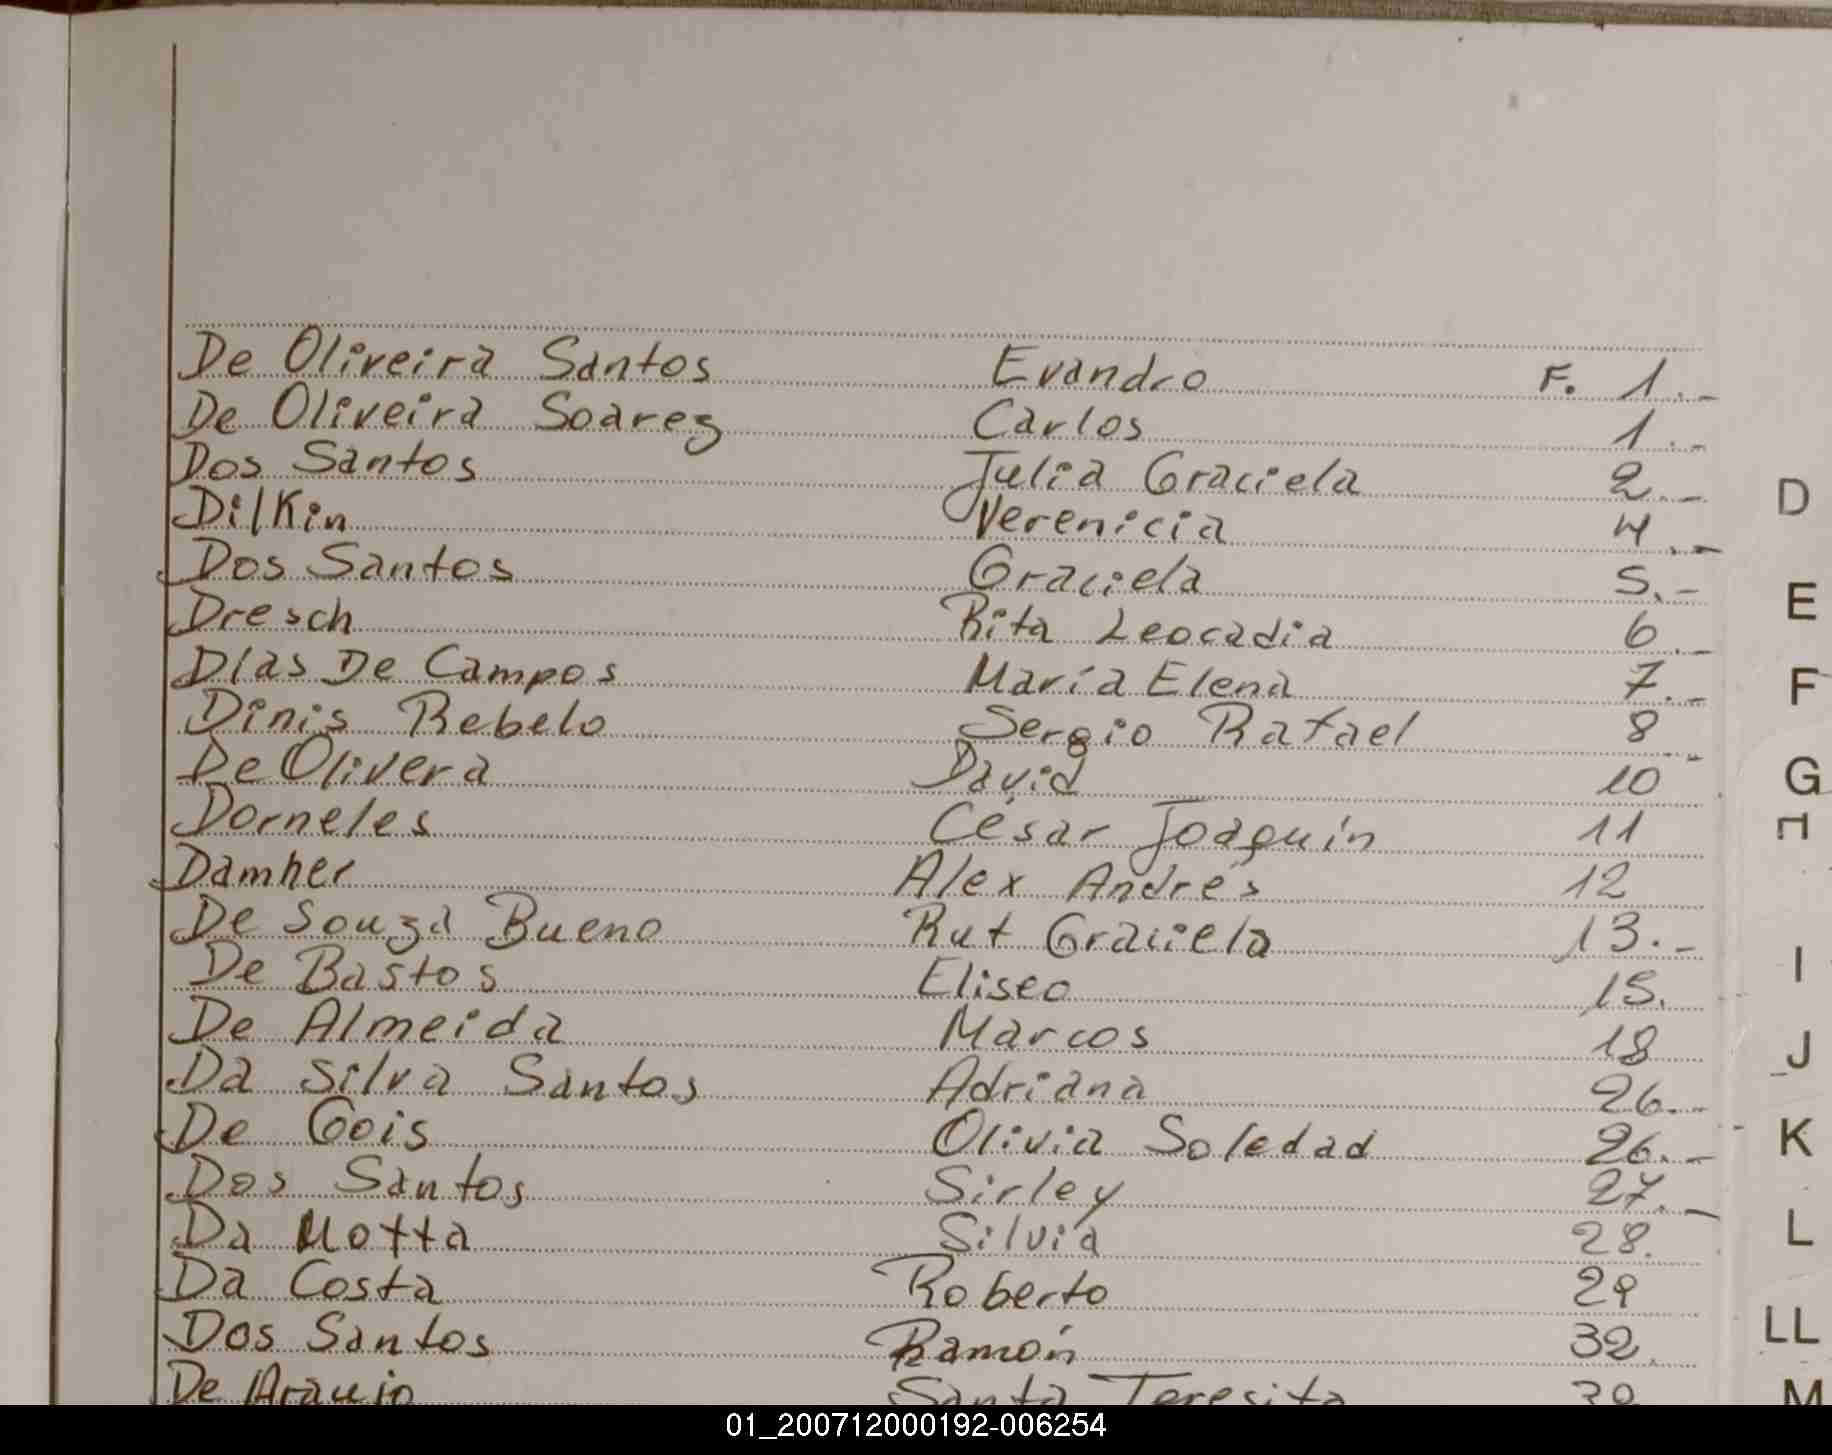 De Oliveira Santos Evandro F. 1.-
De Oliveira Soarez Carlos 1.-
Dos Santos Julia Graciela 2.-
Dilkin Verenicia 4.-
Dos Santos Graciela 5.-
Dresch Rita Leocadia 6.-
Dias De Campos María Elena 7.-
Dinis Rebelo Sergio Rafael 8.-
De Olivera David 10
Dorneles César Joaquín 11
Damher Alex Andrés 12
De Souza Bueno Rut Graciela 13.-
De Bastos Eliseo 15.
De Almeida Marcos 18
Da Silva Santos Adriana 26.-
De Gois Olivia Soledad 26.-
Dos Santos Sirley 27.-
Da Motta Silvia 28.
Da Costa Roberto 29
Dos Santos Ramón 32.
De Araujo Santa Teresita
D
E
F
G
H
I
J
K
L
LL
M
01_200712000192-006254